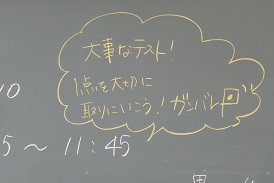 大事なテスト!
1点を大切に
10
取りにいこう!ガンバレ
5 ~ 11:45
男